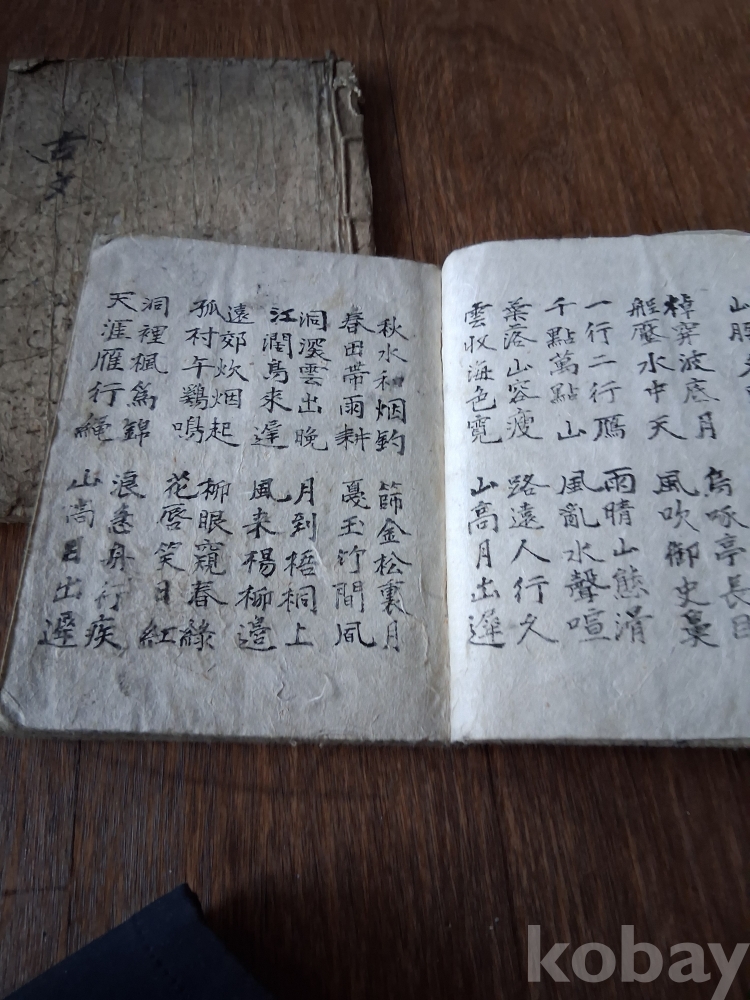 古文
棹穿波底月
船壓水中天
一行二行鴈
千點萬點山
葉落山容瘦
雲收海色寬
鳥啄亭長目
風吹御史
雨晴山態滑
風亂水聲喧
路遠人行久
山高月出遲
秋水和烟釣
春田帶雨耕
洞深雲出晚
江濶鳥來遲
遠郊炊烟起
孤村午鷄鳴
洞裡楓爲錦
天涯雁行繩
篩金松裏月
戞玉竹間風
月到梧桐上
風来楊柳邊
柳眼窺春綠
花唇笑日紅
浪急舟行疾
山高日出遲
kobay